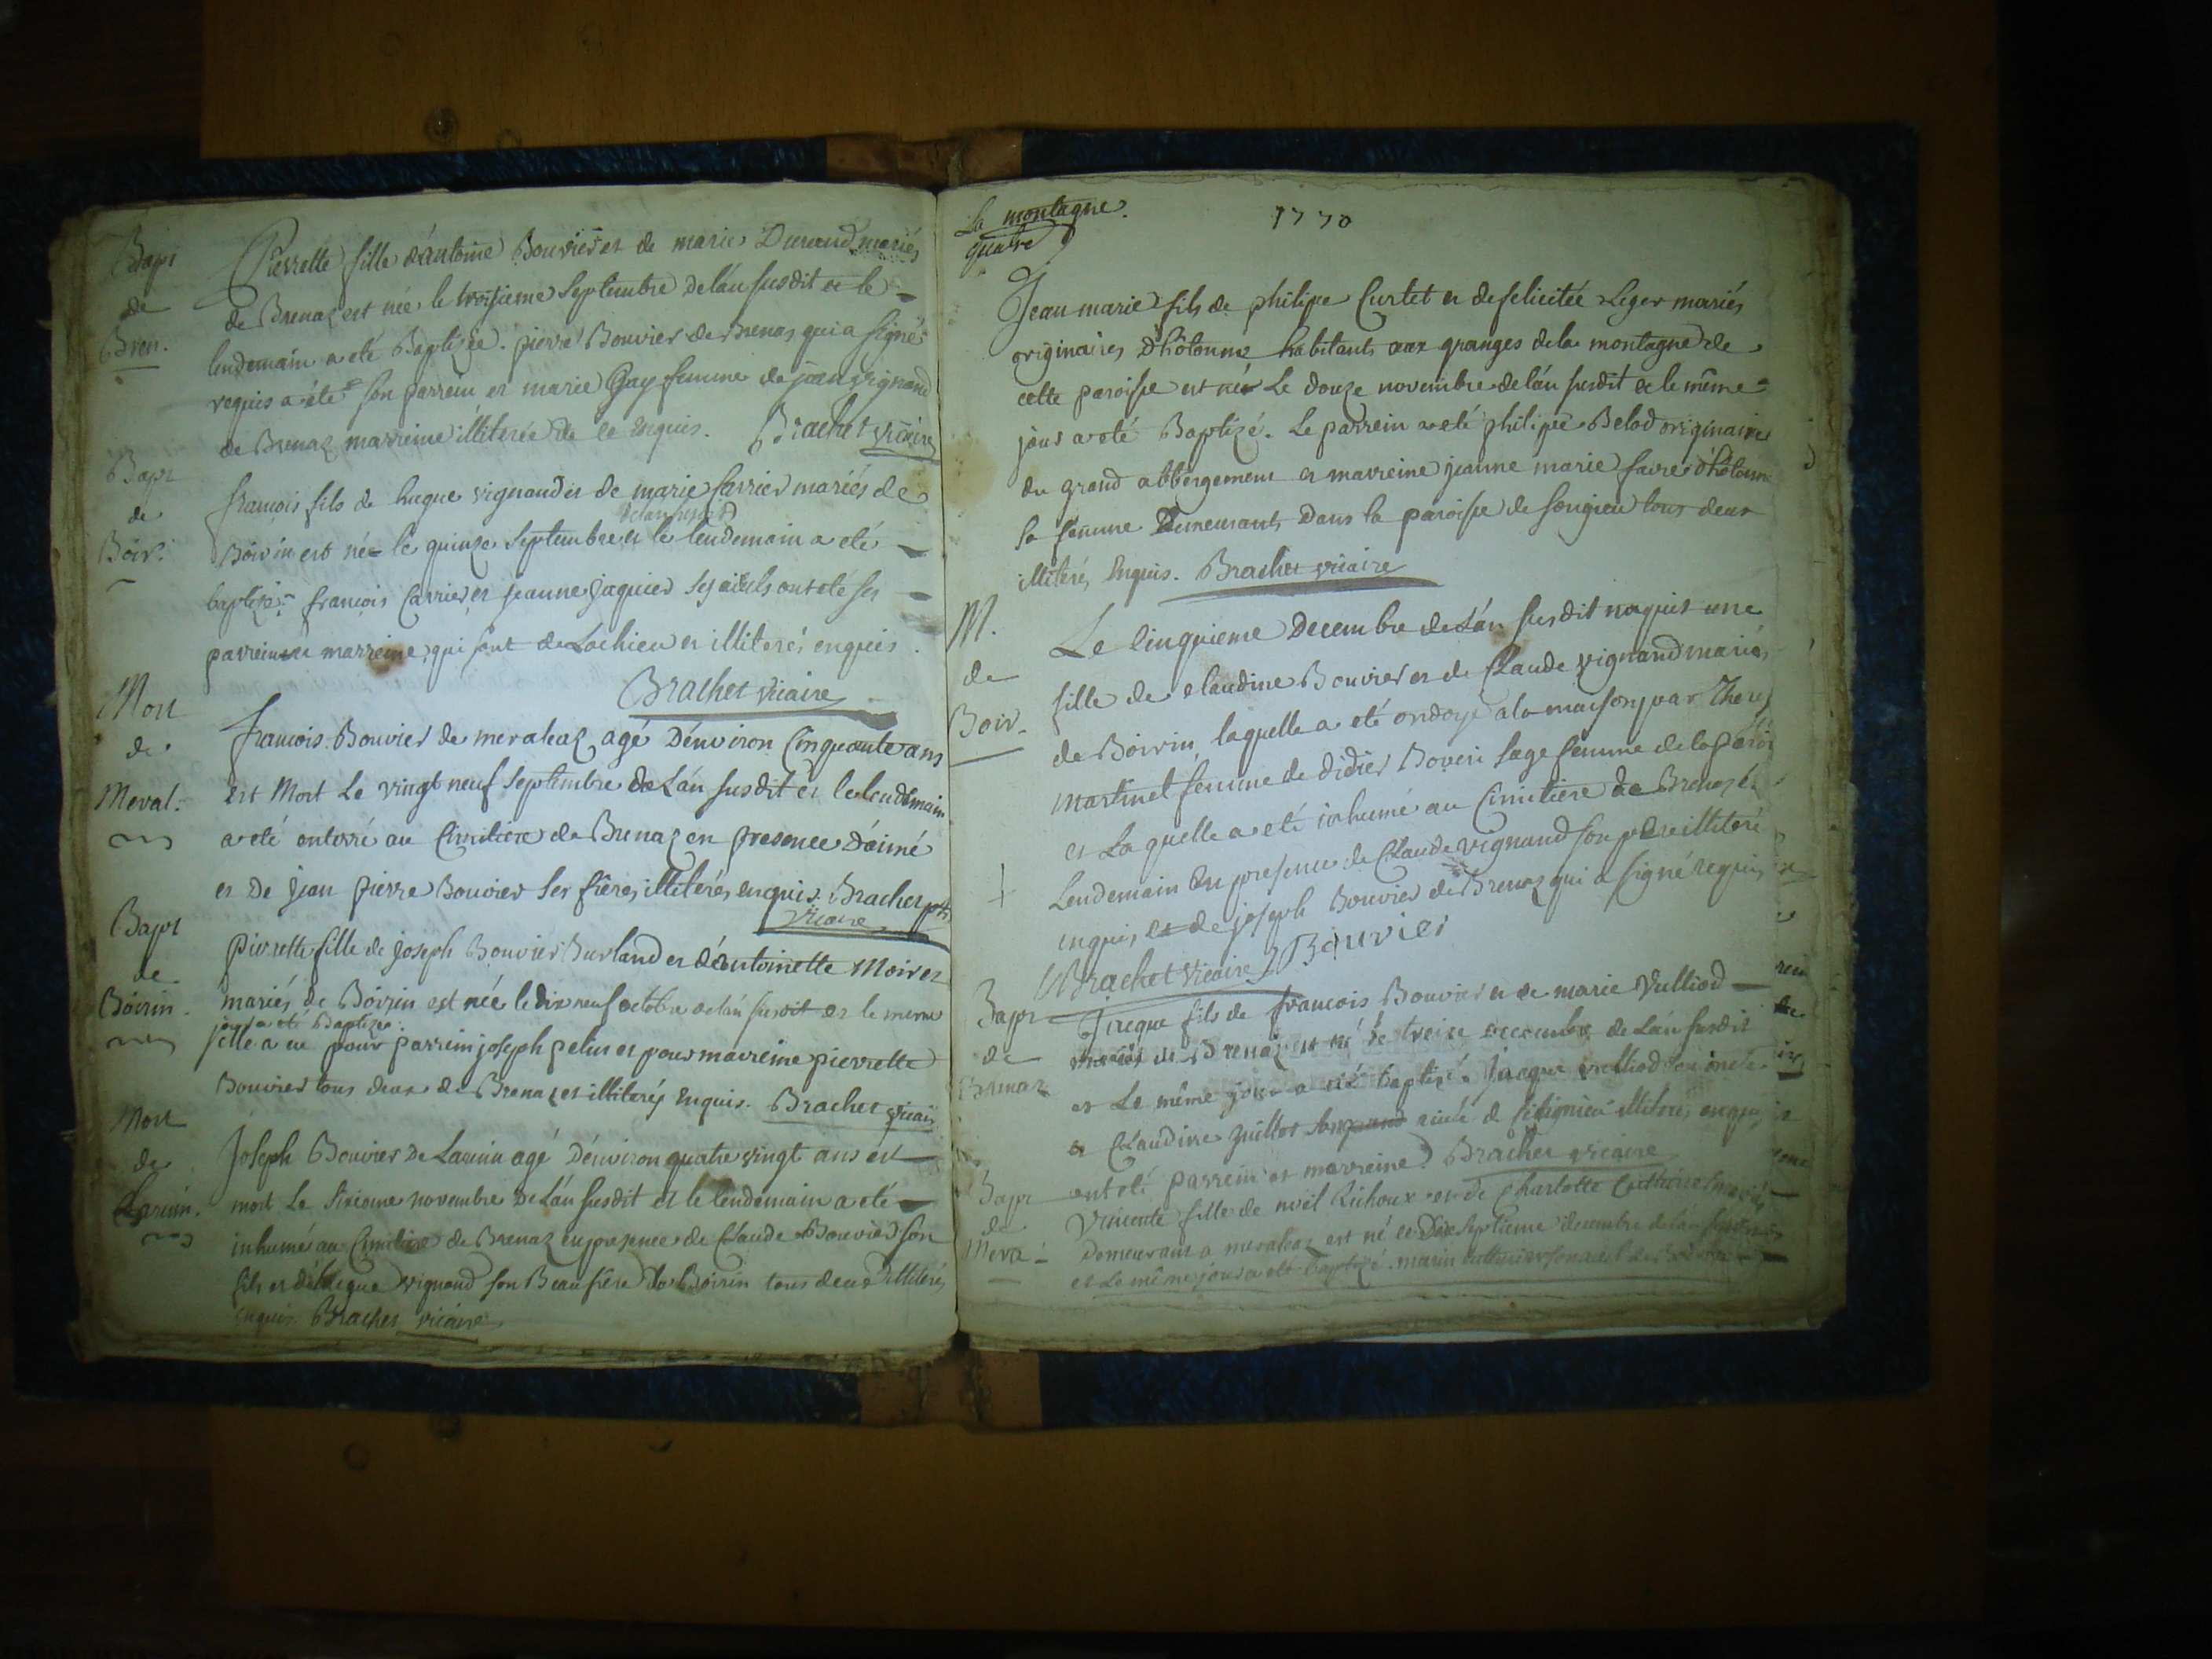 Bapt
de
Bren.
Pierrette fille d'antoine Bouvier et de marie Durand mariés
de Brenaz est née le troisieme Septembre de l'an susdit et le
lendemain a eté Baptizée. pierre Bouvier de Brenaz qui a signé
requis a été son parrein et marie Gay femme de jean vignand
de Brenaz marreine illiterée de ce enquis. Brachet vicaire
Bapt
de
Boir.
françois fils de hugue vignand et de marie Carrier mariés de
de l'an susdit
Boirin est né le quinze Septembre et le lendemain a eté
baptizé. françois Carrier et jeanne jaquier ses aieuls ont eté ses
parrein et marreine, qui sont de Lochieu et illiterés enquis.
Brachet vicaire
Mort
de
Meral.
françois Bouvier de meraleaz agé D'environ Cinquante ans
est Mort Le vingt neuf Septembre de L'an susdit et le lendemain
a eté enterré au Cimitiere de Brenaz en presence D'aimé
et De jean pierre Bouvier ses freres illiterés enquis. Brachet ptr
vicaire
Bapt
de
Boirin.
pierrette fille de joseph Bouvier Burland et d'antoinette Moiret
mariés de Boirin est née le dix neuf octobre de l'an susdit et le meme
jour a eté Baptizée.
elle a eu pour parrein joseph petin et pour marreine pierrette
Bouvier tous deux de Brenaz et illiterés enquis. Brachet vicair
Mort
de
Larinin.
joseph Bouvier De Larinin agé D'environ quatre vingt ans est
mort Le sixieme novembre De L'an susdit et le lendemain a eté
inhumé au Cimitiere de Brenaz en presence de Claude Bouvier son
fils et d'hugue vignand son Beau frere de Boirin tous deux illiterés
enquis. Brachet vicaire
La montagne.
quatre
1770
Jean marie fils de philipe Curtet et de felicitée Leger mariés
originaires D'hôtonne habitants aux granges de la montagne de
cette paroisse est né Le douze novembre de l'an susdit et le même
jour a eté Baptizé. Le parrein a eté philipe Belod originaire
du grand abbergement et marreine jeanne marie favre d'hôtonne
sa femme Demeurants Dans la paroisse de songieu tous deux
illiterés Enquis. Brachet vicaire
M.
de
Boir.
Le Cinquieme Decembre de L'an susdit naquit une
fille de claudine Bouvier et de Claude vignand mariés
de Boirin laquelle a eté ondoyé a la maison par There
martinet femme de didier Boveri sage femme de la paroi
et La quelle a eté inhumé au Cimitiere de Brenaz le
Lendemain En presence de Claude vignand son pere illiteré
enquis, et de joseph Bouvier de Brenaz qui a signé requis
Brachet vicaire J Bouvier
Bapt
de
Brenaz
Jacque fils de francois Bouvier et de marie Vulliod
mariés de Brenaz est né le treize decembre de L'an susdit
et Le même jour a eté baptizé. Jacque vulliod son oncle
et Claudine guillot aieule illiterés enquis
ont eté parrein et marreine. Brachet vicaire
Bapt
de
Mera.
Vincente fille de noël Richoux et de Charlotte mariés
Demeurant a meraleaz est né le Dix Septieme decembre de l'an susdit
et Le même jour a eté baptizé. marin son aieul de